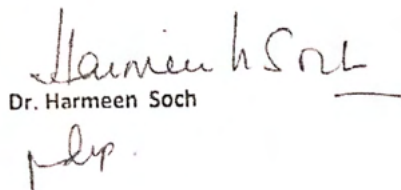 Harmeen K Soch
Dr. Harmeen Soch